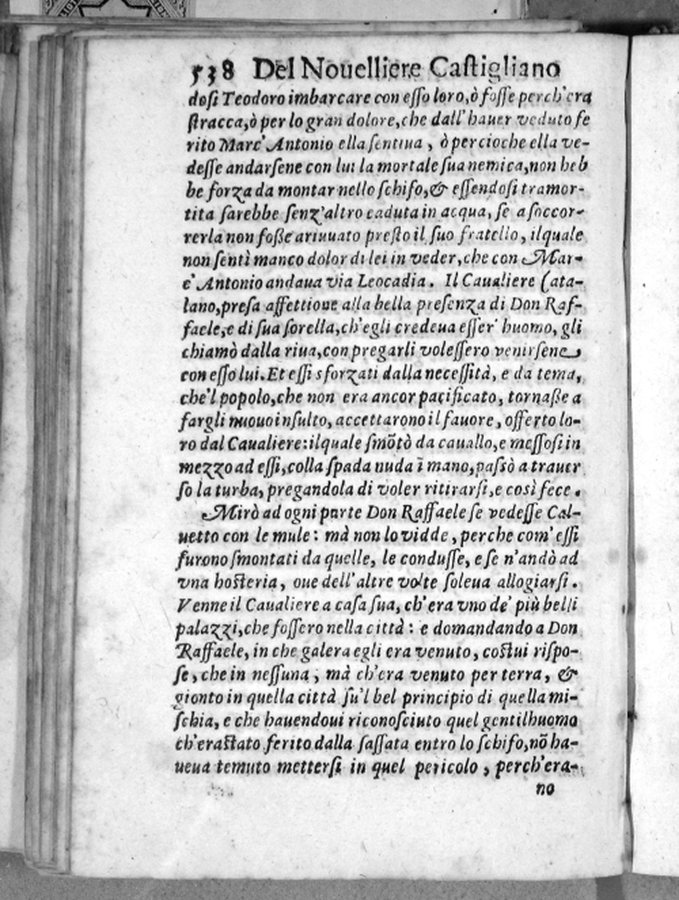 538 Del Nouelliere Castigliano
dosi Teodoro imbarcare con esso loro, ò fosse perch'era
stracca, ò per lo gran dolore, che dall'hauer veduto fe
rito Marc'Antonio ella sentiua, ò percioche ella ve-
desse andarsene con lui la mortale sua nemica, non heb
be forza da montar nello schifo, & essendosi tramor-
tita sarebbe senz'altro caduta in acqua, se a soccor-
rerla non foße ariuuato presto il suo fratello, ilquale
non sentì manco dolor di lei in veder, che con Mar-
c'Antonio andaua via Leocadia. Il Caualiere Cata-
lano, presa affettione alla bella presenza di Don Raf-
faele, e di sua sorella, ch'egli credeua esser' huomo, gli
chiamò dalla riua, con pregarli volessero venirsene
con esso lui. Et essi sforzati dalla necessità, e da tema,
che'l popolo, che non era ancor pacificato, tornaße a
fargli nuouo insulto, accettarono il fauore, offerto lo-
ro dal Caualiere: ilquale smõtò da cauallo, e messosi in
mezzo ad essi, colla spada nuda ĩ mano, passò a trauer
so la turba, pregandola di voler ritirarsi, e così fece.
Mirò ad ogni parte Don Raffaele se vedesse Cal-
uetto con le mule: mà non lo vidde, perche com'essi
furono smontati da quelle, le condusse, e se n'andò ad
vna hosteria, oue dell'altre volte soleua allogiarsi.
Venne il Caualiere a casa sua, ch'era vno de' più belli
palazzi, che fossero nella città: e domandando a Don
Raffaele, in che galera egli era venuto, costui rispo-
se, che in nessuna, mà ch'era venuto per terra, &
gionto in quella città su'l bel principio di quella mi-
schia, e che hauendoui riconosciuto quel gentilhuomo
ch'erastato ferito dalla sassata entro lo schifo, nõ ha-
ueua temuto mettersi in quel pericolo, perch'era-
no